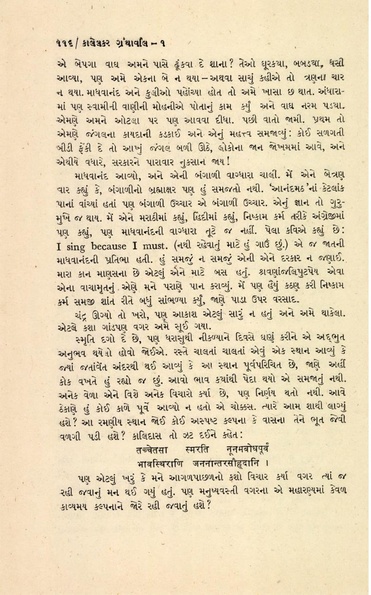 ૫૫૬/ કાલેલકર ગ્રંથાવલિ – ૧
એ બેપગા વાઘ અમને પાસે ઢૂંકવા દે શાના? તેઓ ઘૂરક્યા, બબડ્યા, ધસી
આવ્યા, પણ અમે એકના બે ન થયા – અથવા સાચું કહીએ તો ત્રણના ચાર
ન થયા. માધવાનંદ અને કુલીઓ પહોંચ્યા હોત તો અમે ખાસા છ થાત. અંધારા-
માં પણ સ્વામીની વાણીની મોહનીએ પોતાનું કામ કર્યું અને વાઘ નરમ પડ્યા.
એમણે અમને ઓટલા પર પણ આવવા દીધા. પછી વાતો જામી. પ્રથમ તો
એમણે જંગલના કાયદાની કડકાઈ અને એનું મહત્ત્વ સમજાવ્યું: કોઈ સળગતી
બીડી ફેંકી દે તો આખું જંગલ બળી ઊઠે, લોકોના જાન જોખમમાં આવે, અને
એથીયે વધારે, સરકારને પારાવાર નુકસાન જાય!
માધવાનંદ આવ્યો, અને એની બંગાળી વાગ્ધારા ચાલી. મેં એને બેત્રણ
વાર કહ્યું કે, બંગાળીનો બ્રહ્માક્ષર પણ હું સમજતો નથી. ‘આનંદમઠ’નાં કેટલાંક
પાનાં વાંચ્યાં હતાં પણ બંગાળી ઉચ્ચાર એ બંગાળી ઉચ્ચાર. એનું જ્ઞાન તો ગુરુ-
મુખે જ થાય. મેં એને મરાઠીમાં કહ્યું, હિંદીમાં કહ્યું, નિષ્કામ કર્મ તરીકે અંગ્રેજીમાં
પણ કહ્યું, પણ માધવાનંદની વાગ્ધારા તૂટે જ નહીં. પેલા કવિએ કહ્યું છે:
I sing because I must. (નથી રહેવાતું માટે હું ગાઉં છું.) એ જ જાતની
માધવાનંદની પ્રતિભા હતી. હું સમજું ન સમજું એની એને દરકાર ન જણાઈ.
મારા કાન માણસના છે એટલું એને માટે બસ હતું. શ્રાવણાંજલિપુટપેય એવા
એના વાચામૃતનું એણે મને પરાણે પાન કરાવ્યું. મેં પણ હૈયું કઠણ કરી નિષ્કામ
કર્મ સમજી શાંત રીતે બધું સાંભળ્યા કર્યું, જાણે પાડા ઉપર વરસાદ.
ચંદ્ર ઊગ્યો તો ખરો, પણ આકાશ એટલું સારું ન હતું અને અમે થાકેલા.
એટલે કશા ગાંડપણ વગર અમે સૂઈ ગયા.
સ્મૃતિ દગો દે છે, પણ ધરાસુથી નીકળ્યાને દિવસે ઘણું કરીને એ અદ્ભુત
અનુભવ થયેલો હોવો જોઈએ. રસ્તે ચાલતાં ચાલતાં એવું એક સ્થાન આવ્યું કે
જ્યાં જતાંવેંત અંદરથી થઈ આવ્યું કે આ સ્થાન પૂર્વપરિચિત છે, જાણે અહીં
કોક વખતે હું રહ્યો જ છું. આવો ભાવ ક્યાંથી પેદા થયો એ સમજાતું નથી.
અનેક વેળા એને વિશે અનેક વિચારો કર્યા છે, પણ નિર્ણય થતો નથી. આવે
ઠેકાણે હું કોઈ કાળે પૂર્વે આવ્યો ન હતો એ ચોક્કસ. ત્યારે આમ શાથી લાગ્યું
હશે? આ રમણીય સ્થાન જોઈ કોઈ અસ્પષ્ટ કલ્પના કે વાસના તેને ભૂત જેવી
વળગી પડી હશે? કાલિદાસ તો ઝટ દઈને કહેત:
तच्चेतसा स्मरति नूनमबोधपूर्वं
भावस्थिराणि जननान्तरसौहृदानि ।
પણ એટલું ખરું કે મને આગળપાછળનો કશો વિચાર કર્યા વગર ત્યાં જ
રહી જવાનું મન થઈ ગયું હતું. પણ મનુષ્યવસ્તી વગરના એ મહારણ્યમાં કેવળ
કાવ્યમય કલ્પનાને જોરે રહી જવાતું હશે?